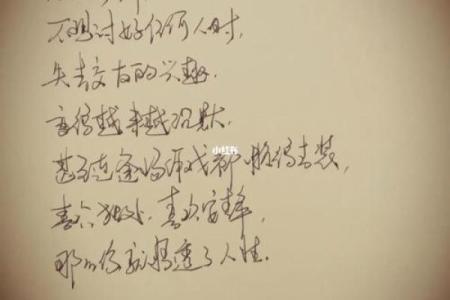 不想讨好任何人时,
失去交友的兴趣.
变得越来越沉默.
小红书
甚至连逢场作戏都懒得去装,
喜欢独处,喜欢安静,
那么你就看透了人性.